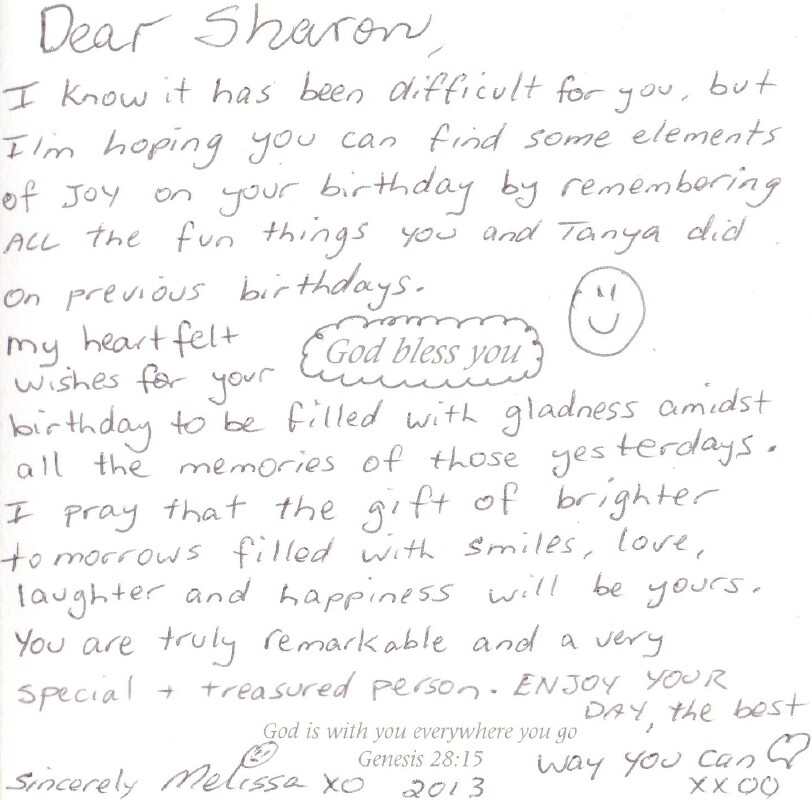 Dear Sharon,
I know it has been difficult for you, but
I'm hoping you can find some elements
of JOY on your birthday by remembering
ALL the fun things you and Tanya did
on previous birthdays.
my heartfelt
God bless you
wishes for your
birthday to be filled with gladness amidst
all the memories of those yesterdays.
I pray that the gift of brighter
tomorrows filled with smiles, love,
laughter and happiness will be yours.
You are truly remarkable and a very
special + treasured person. ENJOY YOUR
DAY, the best
God is with you everywhere you go
Genesis 28:15
way you can
sincerely Melissa XO 2013 XXOO